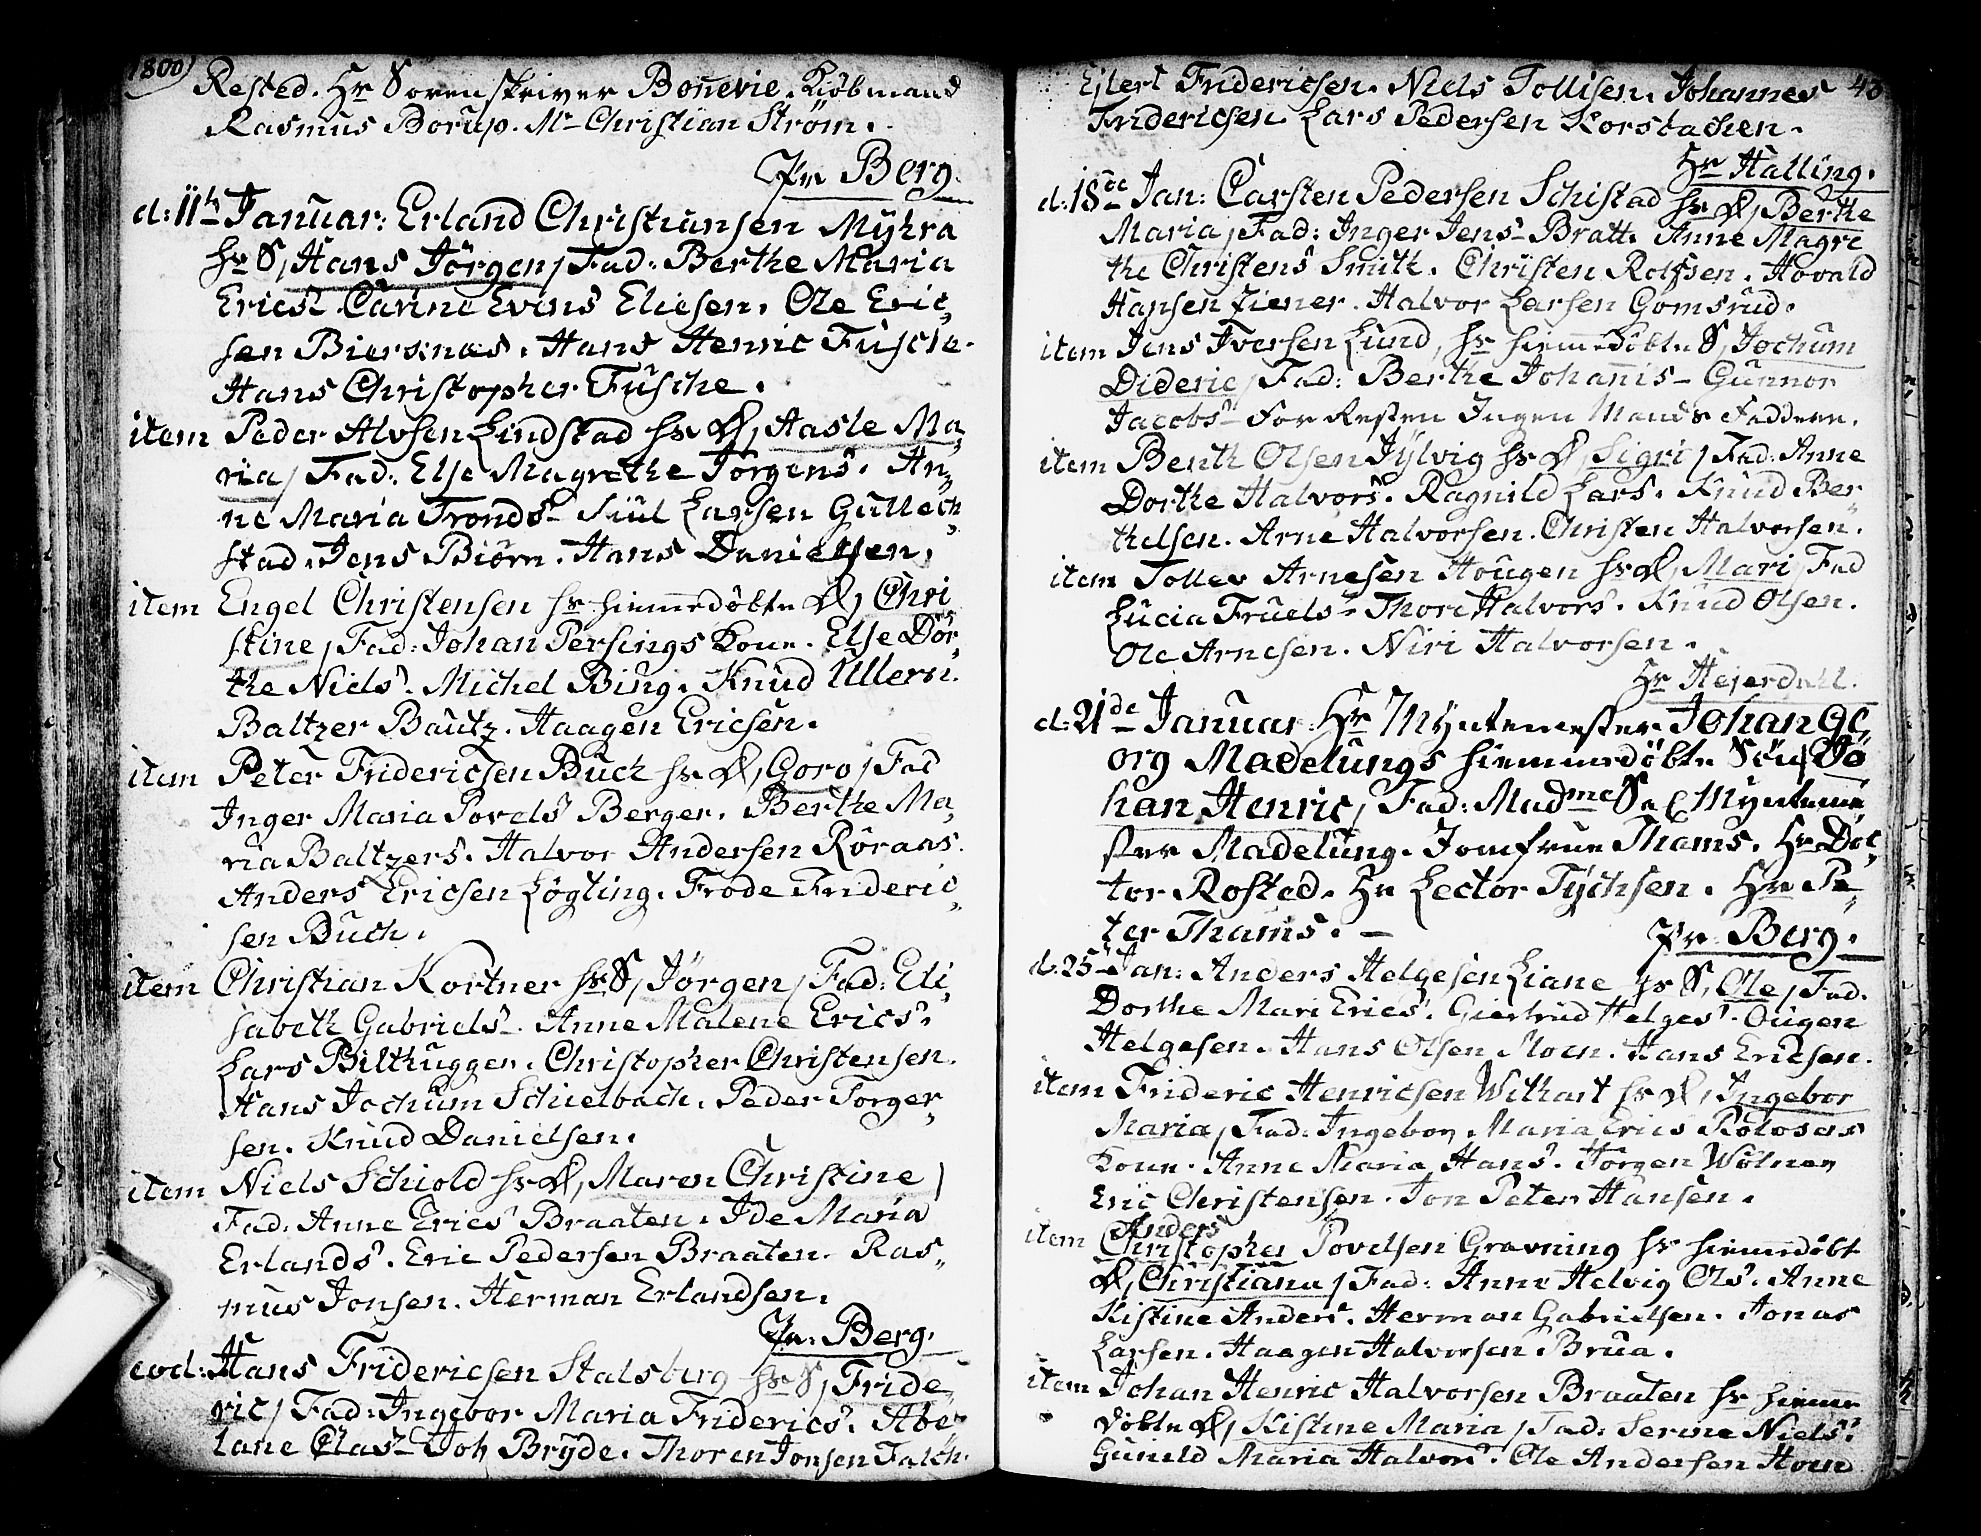 1800)
Rosted. Hr Sorenskriver Bonevie. Kiöbmand
Rasmus Borup. Mr Christian Ström.
Pr Berg.
d: 11te Januar: Erland Christiansen Myhra
hs S, Hans Jörgen / Fad: Berthe Maria
Erics? Carine Evens Eliesen. Ole Eric,,
sen Biersenæs. Hans Henric Fusche.
Hans Christopher Fusche.
item Peder Alvsen Lindstad hs D, Aasle Ma,,
ria / Fad: Else Magrethe Jörgens?. An,,
ne Maria Tronds? Juul Larsen Gullech,,
stad. Jens Biörn. Hans Danielsen.
item Engel Christensen hs hiemmedöbte D, Chri
stine / Fad: Johan Persings Kone. Else Dor,,
the Niels?. Michel Bing. Knud Ullern.
Baltzer Bautz. Haagen Ericsen.
item Peter Fridericsen Buch hs D, Goro / Fad
Inger Maria Povels? Berger. Berthe Ma,,
ria Baltzers. Halvor Andersen Röraas.
Anders Ericsen Lögling. Frode Frideric,,
sen Buch.
item Christian Kortner hs S, Jörgen / Fad: Eli,,
sabeth Gabriels?. Anne Malene Erics?.
Lars Bilthugger. Christopher Christensen.
Hans Jochum Schielbach. Peder Torger,,
sen. Knud Danielsen.
item Niels Schiold hs D, Maren Christine /
Fad: Anne Erics? Braaten. Ide Maria
Erlands?. Eric Pedersen Braaten. Ras,,
mus Jonsen. Herman Erlandsen.
Pr. Berg.
eod: Hans Fridericsen Stalsburg hs S, Fride,,
ric / Fad: Ingebor Maria Friderics?. Abe,,
lane Clas? Joh Bryde. Thoren Jonsen Falch.
Ejlert Fridericsen. Niels Tollisen. Johannes 48
Fridericsen. Lars Pedersen Korsbachen.
Hr Halling.
d: 18de Jan: Carsten Pedersen Schistad hs D, Berthe
Maria / Fad: Inger Jens? Bratt. Anne Magre
the Christens Smith. Christen Rolfsen. Hovald
Hansen Ziener. Halvor Larsen Gomsrud.
item Jens Iversen Lund, hs hiemmedöbte S, Jochum
Dideric / Fad: Berthe Johannis? Gunnor
Jacobs? For Resten Ingen Mands Faddere.
item Benth Olsen Jylvig hs D, Sigri / Fad: Anne
Dorthe Halvors?. Ragnild Lars. Knud Ber,,
thelsen. Arne Halvorsen. Christen Halvorsen.
item Tollev Arnesen Hougen hs D, Mari / Fad
Lucia Truels? Thore Halvors?. Knud Olsen.
Ole Arnesen. Niri Halvorsen.
Hr Hejerdahl.
d: 21de Januar: Hr Myntemester Johan Ge,,
org Madelungs hiemmedöbte Sön / Jo
han Henric, Fad: Madme Sal Myntemæ
ster Madelung. Jomfrue Thams. Hr Doc,,
tor Rosted. Hr Lector Tychsen. Hr Pe,,
ter Thams. –
Pr. Berg.
d. 25 Jan: Anders Helgesen Liane hs S, Ole / Fad.
Dorthe Mari Erics?. Giertrud Helges?. Ougen
Helgesen. Hans Olsen Moen. Hans Ericsen.
item Frideric Henricsen Withart hs D, Ingebor
Maria / Fad: Ingebor Maria Erics
Kone. Anne Maria Hans?. Jörgen Wölner
Eric Christensen. Jon Peter Hansen.
Anders
item Christopher Povelsen Gravning hs hiemmedöbt
D, Christiana / Fad: Anne Helvig Ols?. Anne
Kistine Anders?. Herman Gabrielsen. Jonas
Larsen. Haagen Halvorsen Brua.
item Johan Henric Halvorsen Braaten hs hiemme
döbte D, Kistine Maria / Fad: Serine Niels?
Gunild Maria Halvors?. Ole Andersen Hoen